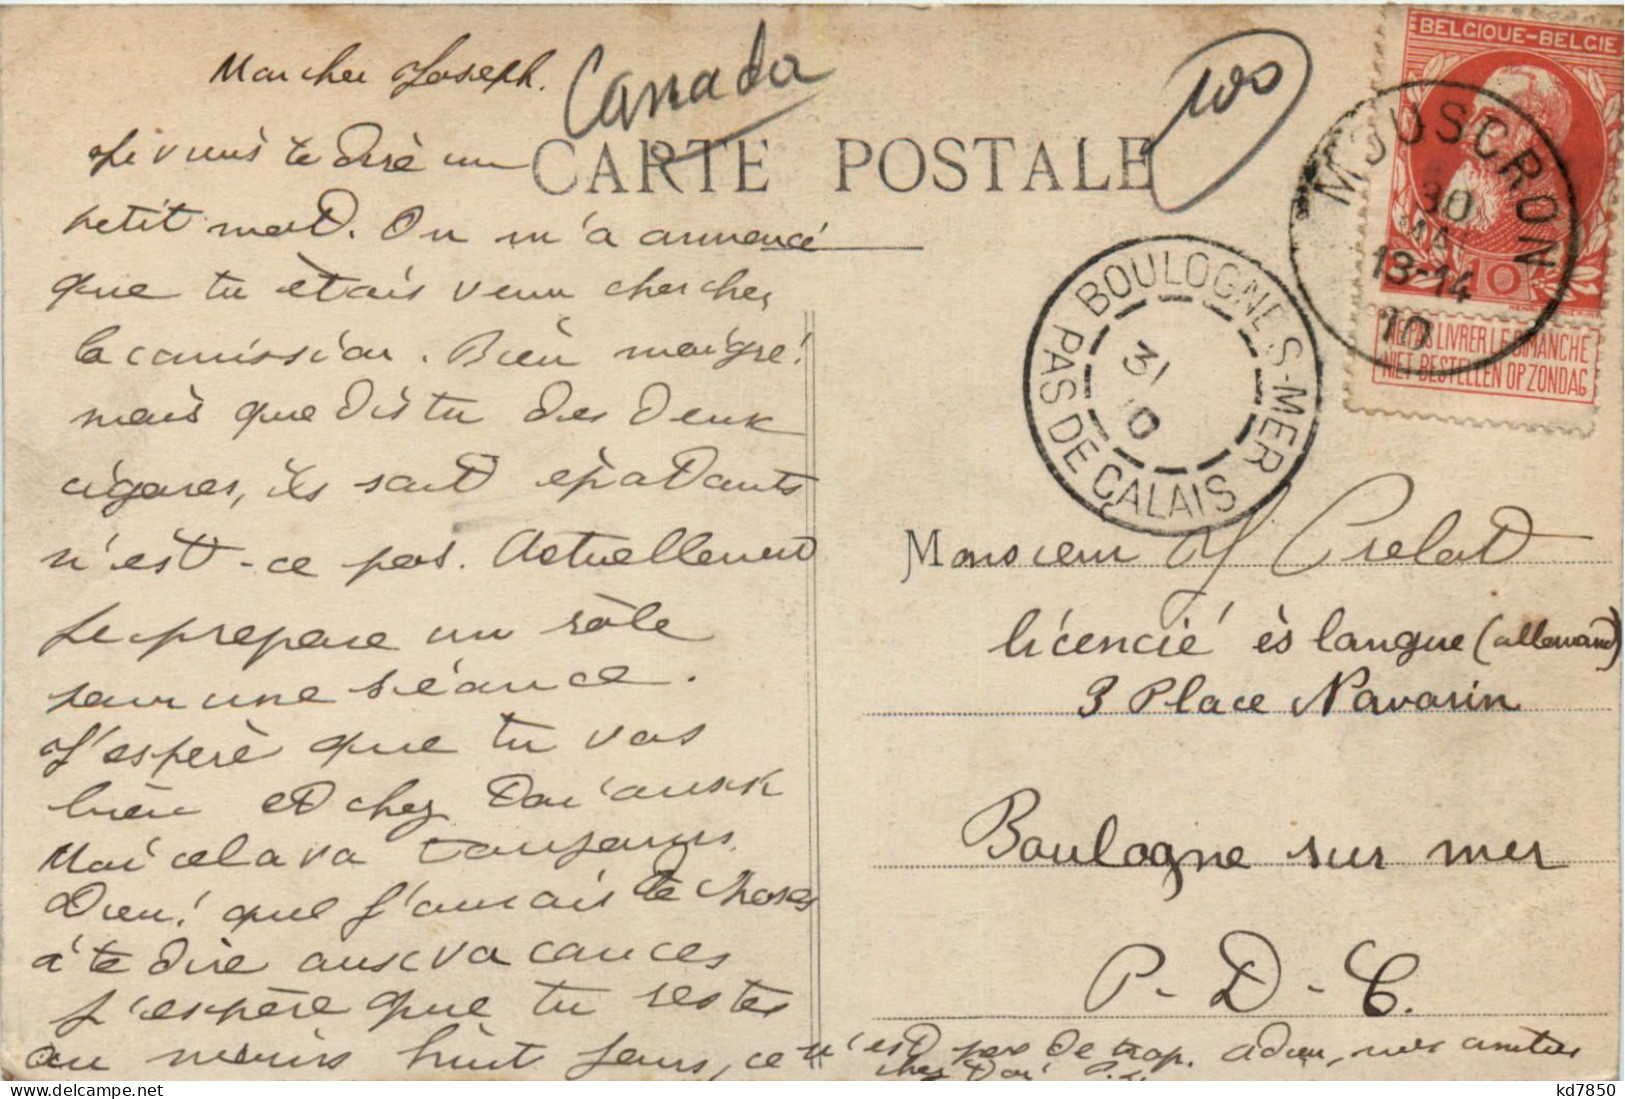 Mon cher Joseph.
Canada
100
CARTE POSTALE
Je viens te dire un
petit mot. On m'a annoncé
que tu étais venu chercher
la comission. Bien maigre!
mais que dis tu des deux
cigares, ils sont épatants
n'est-ce pas. Actuellement
Je prepare un rôle
pour une séance.
J'espère que tu vas
bien et chez toi aussi
Moi cela va toujours.
Dieu! que j'aurais de choses
à te dire aux vacances
J'espère que tu restes
au moins huit jours, ce n'est pas de trop. adieu, mes amitiés
chez toi
BELGIQUE-BELGIË
10
NE PAS LIVRER LE DIMANCHE
NIET BESTELLEN OP ZONDAG
MOUSCRON
30
MAI
13-14
10
BOULOGNE-S-MER
31
10
PAS DE CALAIS
Monsieur J Prelat
licencié ès langue (allemand)
3 Place Navarin
Boulogne sur mer
P-D-C.
kd7850